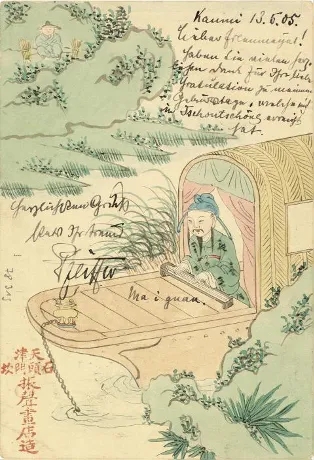 Kaumi 13.6.05.
Lieber
haben Sie vielen herz-
lichen Dank für Ihre liebe
Gratulation zu meinem
Geburtstage, welche mich
in Tschoutschön erreicht
hat.
Herzlichsten Gruß
stets Ihr treuer
Pfeiffer
Ma i quan.
天津石頭門坎
振聲畫店造